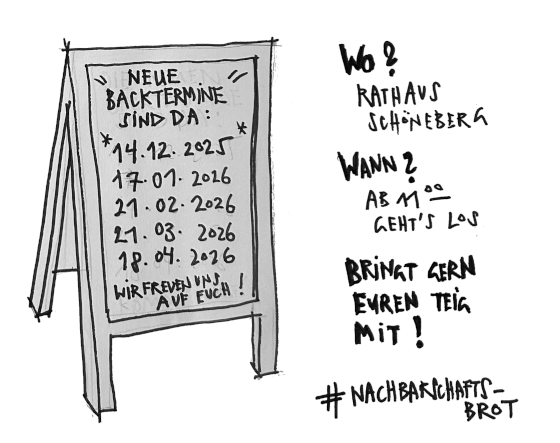 NEUE
BACKTERMINE
SIND DA:
14.12.2025
17.01.2026
21.02.2026
21.03.2026
18.04.2026
WIR FREUEN UNS
AUF EUCH!
WO?
RATHAUS
SCHÖNEBERG
WANN?
AB 11⁰⁰
GEHT'S LOS
BRINGT GERN
EUREN TEIG
MIT!
#NACHBARSCHAFTS-
BROT